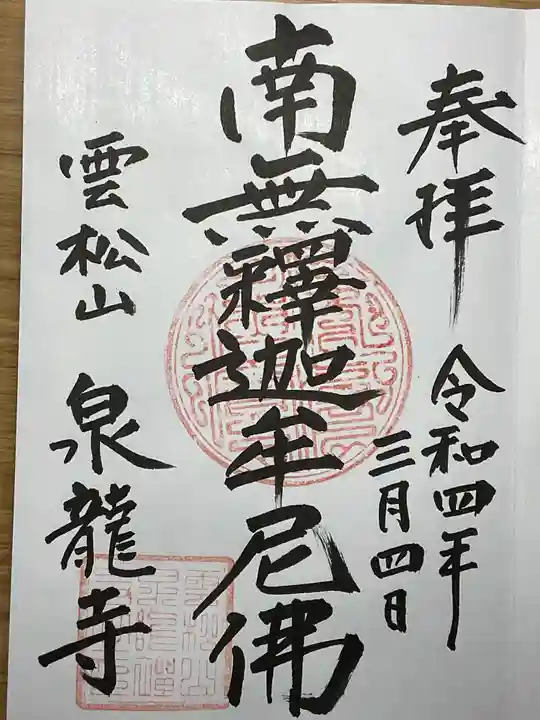 奉拝
令和四年
三月四日
南無釋迦牟尼佛
雲松山 泉龍寺